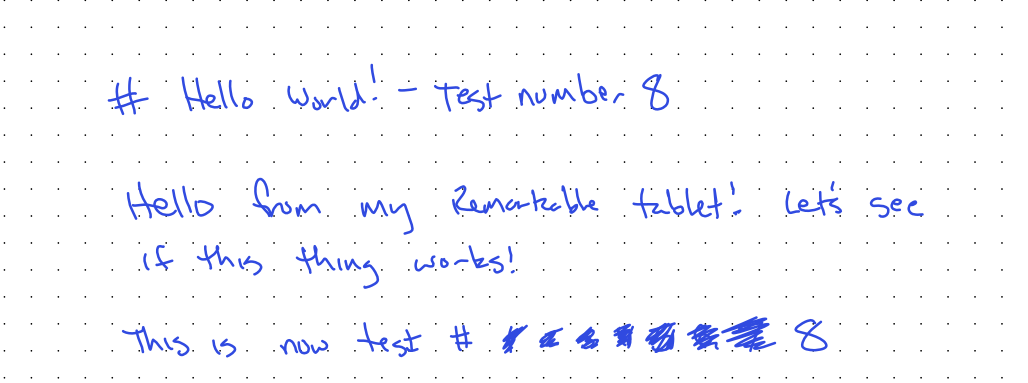 # Hello World! - Test number 8
Hello from my Remarkable tablet! Let's see
if this thing works!
This is now test # 8